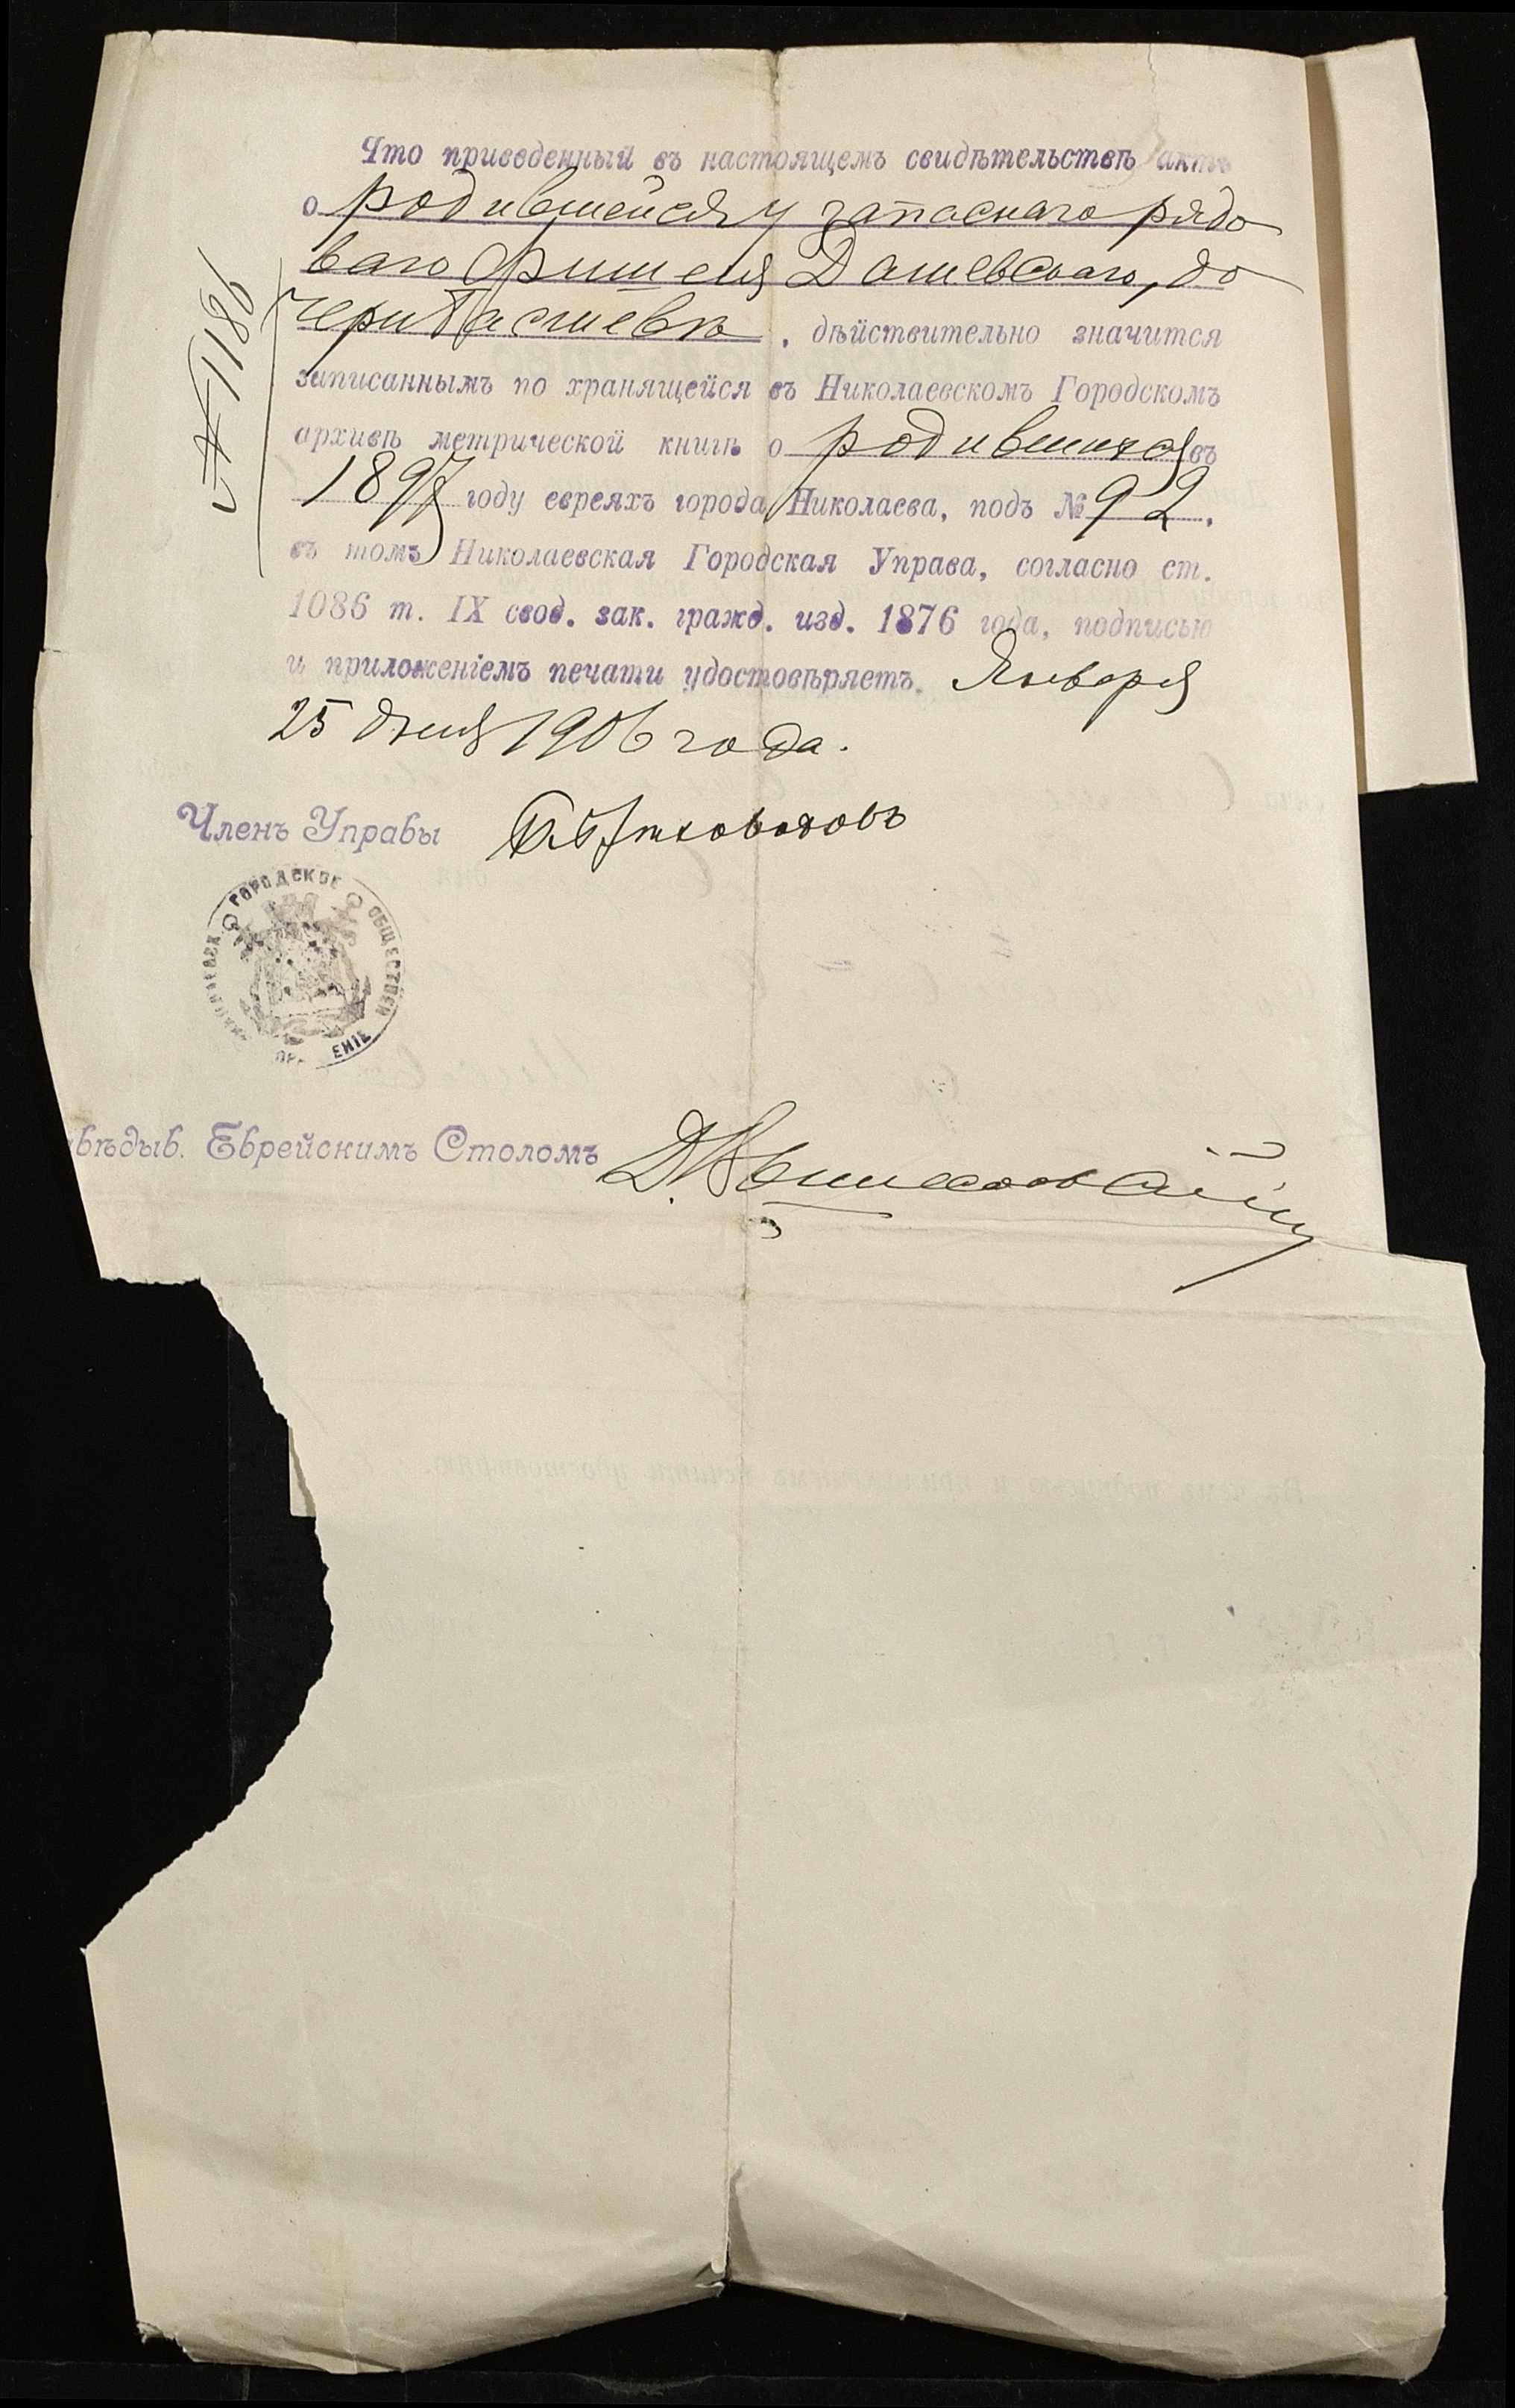 Что приведенный въ настоящемъ свидѣтельствѣ актъ
о родившейся у запаснаго рядо
ваго Фишеля Дашевскаго, до
чери Басшевѣ, дѣйствительно значится
записаннымъ по хранящейся въ Николаевскомъ Городскомъ
архивѣ метрической книгѣ о родившихся въ
1897 году евреяхъ города Николаева, подъ № 92,
въ томъ Николаевская Городская Управа, согласно ст.
1086 т. IX свод. зак. гражд. изд. 1876 года, подписью
и приложеніемъ печати удостовѣряетъ. Января
25 дня 1906 года.
№ 1186
Членъ Управы
ГОРОДСКОЕ ОБЩЕСТВЕН
ЕНІЕ
вѣдыв. Еврейскимъ Столомъ